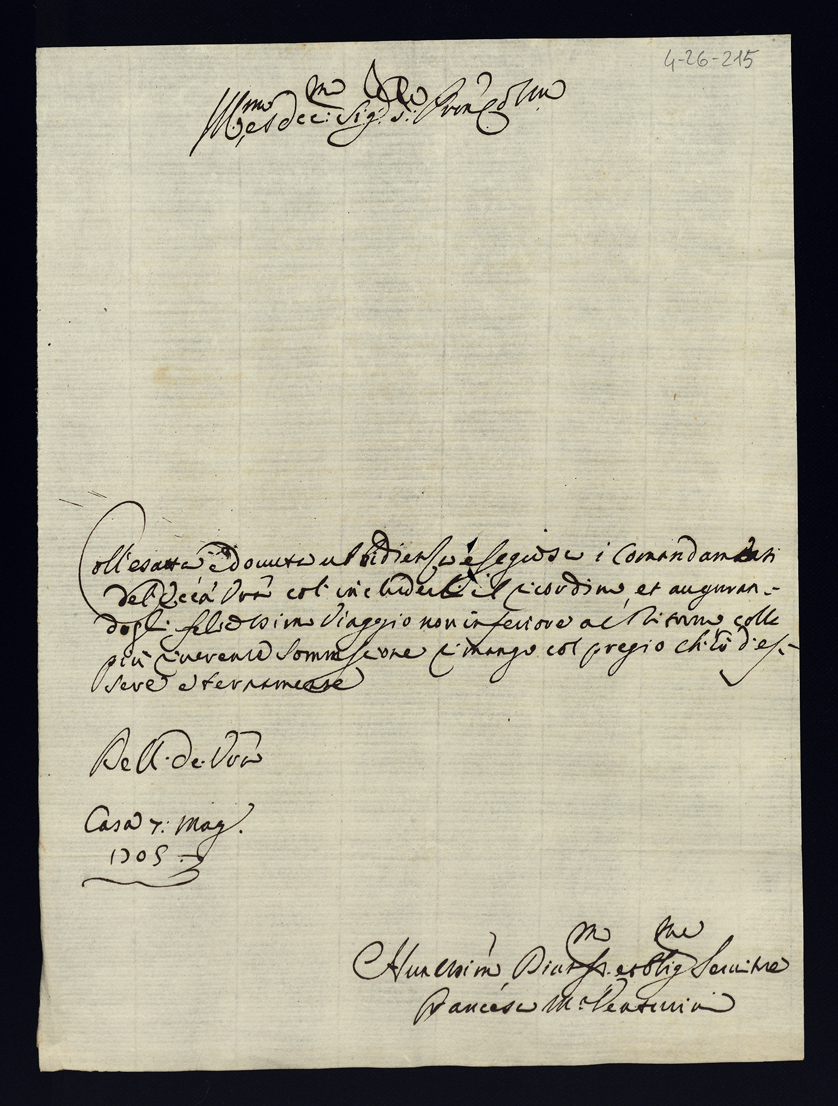 4-26-215
Ill.mo et Ecc.mo Sig.r
Coll'esatta è dovuta ubbidienza eseguisco i Comandamenti
dell'Ecc.a Vr̃a col includerli il ricordino et auguran-
dogli felicissimo Viaggio non inferiore al Ritorno colla
più riverente Sommissione rimango col pregio d'es-
sere eternamente
Dell' Ecc. Vr̃a
Casa 7: Mag.
1705
Humilissimo et Oblig.mo Servitore
Francesco M.a Venturini